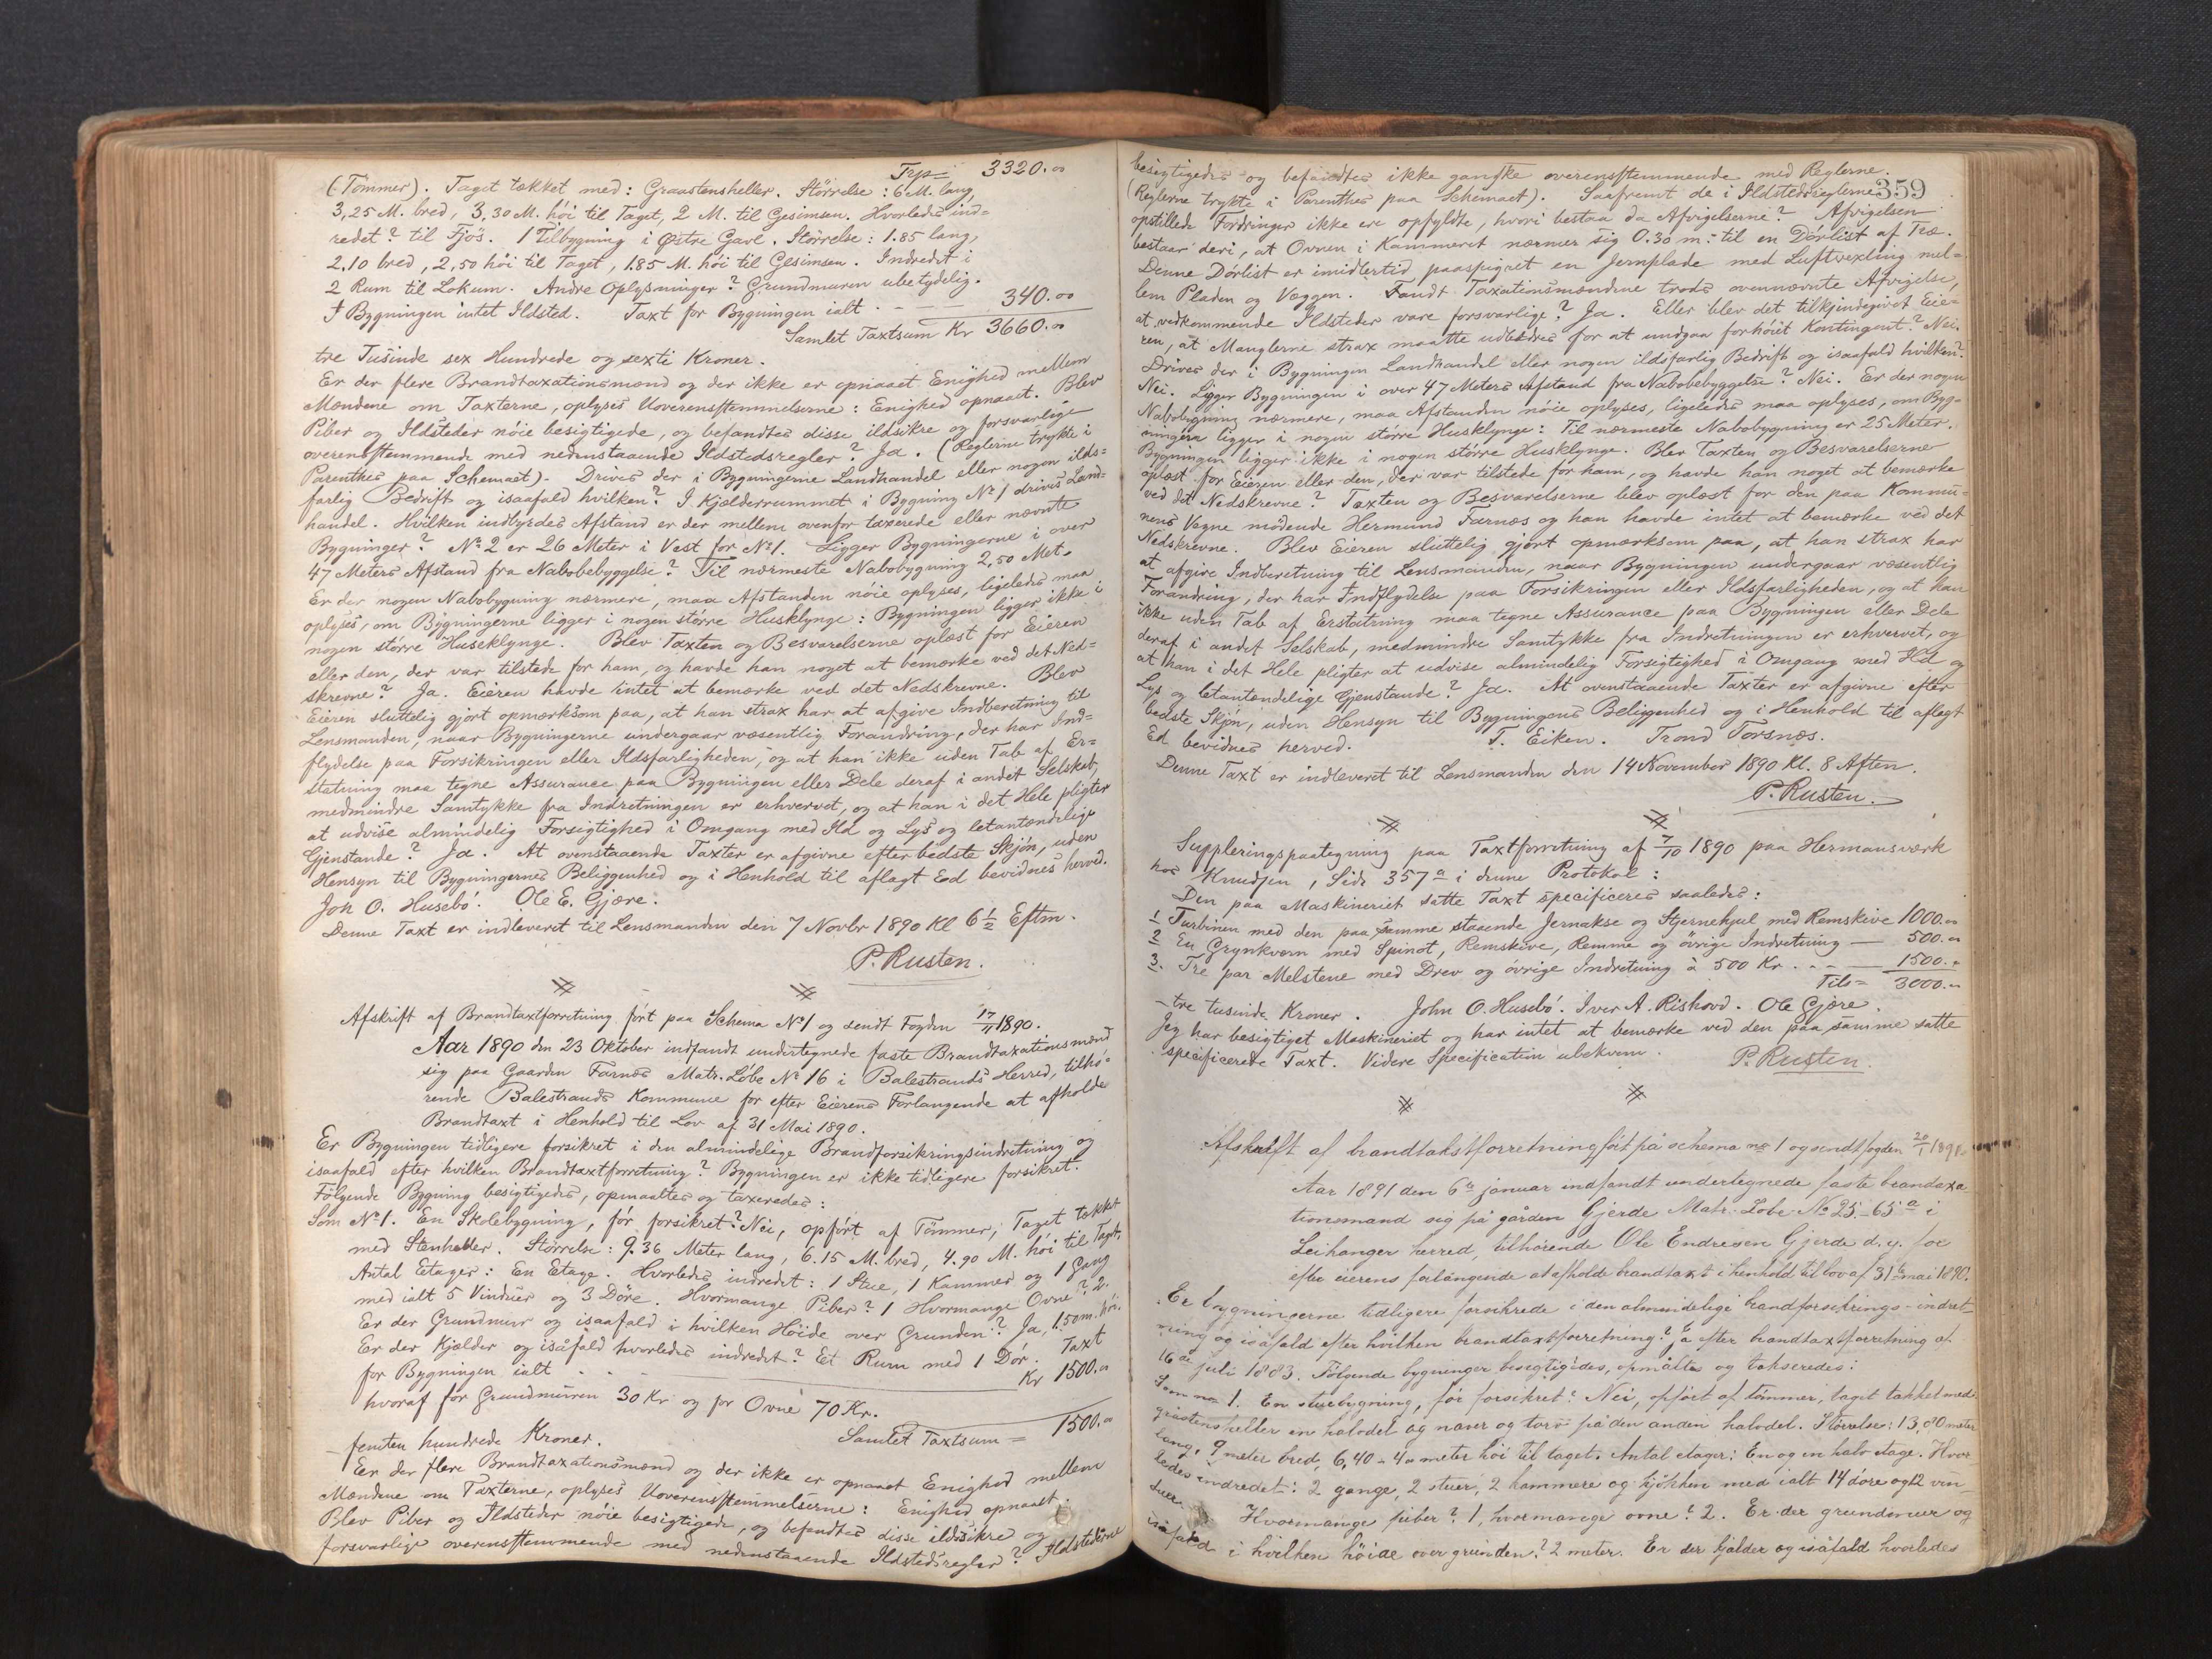 Trp= 3320.00
(Tømmer). Taget tækket med: Graastensheller. Størrelse: 6 M. lang,
3,25 M. bred, 3,30 M. høi til Taget, 2 M. til Gesimsen. Hvorledes ind-
redet? til Fjøs. 1 Tilbygning i Østre Gavl. Størrelse: 1.85 lang,
2.10 bred, 2,50 høi til Taget, 1.85 M. høi til Gesimsen. Indredet i
2 Rum til Lokum. Andre Oplysninger? Grundmuren ubetydelig.
I Bygningen intet Ildsted. Taxt for Bygningen ialt - 340.00
Samlet Taxtsum Kr 3660.00
tre Tusinde sex Hundrede og sexti Kroner.
Er der flere Brandtaxationsmænd og der ikke er opnaaet Enighed mellem
Mændene om Taxterne, oplyses Uoverensstemmelserne: Enighed opnaaet. Blev
Piber og Ildsteder nøie besigtigede, og befandtes disse ildsikre og forsvarlige
overensstemmende med nedenstaaende Ildstedsregler? Ja. (Reglerne trykte i
Parenthes paa Schemaet). Drives der i Bygningerne Landhandel eller nogen ilds=
farlig Bedrift og isaafald hvilken? I Kjælderrummet i Bygning No 1 drives Land=
handel. Hvilken indbyrdes Afstand er der mellem ovenfor taxerede eller nævnte
Bygninger? No 2 er 26 Meter i Vest for No 1. Ligger Bygningerne i over
47 Meters Afstand fra Nabobebyggelse? Til nærmeste Nabobygning 2,50 Met.
Er der nogen Nabobygning nærmere, maa Afstanden nøie oplyses, ligeledes maa
oplyses, om Bygningerne ligger i nogen større Husklynge: Bygningen ligger ikke i
nogen større Husklynge. Blev Taxten og Besvarelserne oplæst for Eieren
eller den, der var tilstede for ham, og havde han noget at bemærke ved det Ned=
skrevne? Ja. Eieren havde intet at bemærke ved det Nedskrevne. Blev
Eieren sluttelig gjort opmærksom paa, at han strax har at afgive Indberetning til
Lensmanden, naar Bygningerne undergaar væsentlig Forandring, der har Ind=
flydelse paa Forsikringen eller Ildsfarligheden, og at han ikke uden Tab af Er=
statning maa tegne Assurance paa Bygningen eller Dele deraf i andet Selskab,
medmindre Samtykke fra Indretningen er erhvervet, og at han i det Hele pligter
at udvise almindelig Forsigtighed i Omgang med Ild og Lys og letantændelige
Gjenstande? Ja. At ovenstaaende Taxter er afgivne efter bedste Skjøn, uden
Hensyn til Bygningernes Beliggenhed og i Henhold til aflagt Ed bevidnes herved.
Joh O. Husebø. Ole E. Gjøre.
Denne Taxt er indleveret til Lensmanden den 7 Novbr 1890 Kl 6 1/2 Eftm.
P. Rusten.
Afskrift af Brandtaxtforretning ført paa Schema No 1 og sendt Fogden 17/11 1890.
Aar 1890 den 23 Oktober indfandt undertegnede faste Brandtaxationsmænd
sig paa Gaarden Farnæs Matr. Løbe No 16 i Balestrands Herred, tilhø-
rende Balestrands Kommune for efter Eierens Forlangende at afholde
Brandtaxt i Henhold til Lov af 31 Mai 1890.
Er Bygningen tidligere forsikret i den almindelige Brandforsikringsindretning og
isaafald efter hvilken Brandtaxtforretning? Bygningen er ikke tidligere forsikret.
Følgende Bygning besigtigedes, opmaaltes og taxeredes:
Som No 1. En Skolebygning, før forsikret? Nei, opført af Tømmer, Taget tækket
med Stenheller. Størrelse: 9.36 Meter lang, 6.15 M. bred, 4.90 M. høi til Taget.
Antal Etager: En Etage. Hvorledes indredet: 1 Stue, 1 Kammer og 1 Gang
med ialt 5 Vinduer og 3 Døre. Hvormange Piber? 1 Hvormange Ovne? 2.
Er der Grundmur og isaafald i hvilken Høide over Grunden? Ja, 1.50 m. høi.
Er der Kjælder og isåfald hvorledes indredet? Et Rum med 1 Dør. Taxt
for Bygningen ialt . - - Kr 1500.00
hvoraf for Grundmuren 30 Kr og for Ovne 70 Kr.
Samlet Taxtsum = 1500.00
- femten hundrede Kroner.
Er der flere Brandtaxationsmænd og der ikke er opnaaet Enighed mellem
Mændene om Taxterne, oplyses Uoverensstemmelserne: Enighed opnaaet.
Blev Piber og Ildsteder nøie besigtigede, og befandtes disse ildsikre og
forsvarlige overensstemmende med nedenstaaende Ildstedsregler? Ildstederne
359
besigtigedes og befandtes ikke ganske overensstemmende med Reglerne.
(Reglerne trykte i Parenthes paa Schemaet). Saafremt de i Ildstedsreglerne
opstillede Fordringer ikke ere opfyldte, hvori bestaa da Afvigelserne? Afvigelsen
bestaar deri, at Ovnen i Kammeret nærmer sig 0.30 m. til en Dørlist af Træ.
Denne Dørlist er imidlertid paaspigret en Jernplade med Luftvexling mel=
lem Pladen og Væggen. Fandt Taxationsmændene trods ovennævnte Afvigelse,
at vedkommende Ildsteder vare forsvarlige? Ja. Eller blev det tilkjendegivet Eie=
ren, at Manglerne strax maatte udbedres for at undgaa forhøiet Kontingent? Nei.
Drives der i Bygningen Landhandel eller nogen ildsfarlig Bedrift og isaafald hvilken?
Nei. Ligger Bygningen i over 47 Meters Afstand fra Nabobebyggelse? Nei. Er der nogen
Nabobygning nærmere, maa Afstanden nøie oplyses, ligeledes maa oplyses, om Byg-
ningerne ligger i nogen større Husklynge: Til nærmeste Nabobygning er 25 Meter.
Bygningen ligger ikke i nogen større Husklynge. Blev Taxten og Besvarelserne
oplæst for Eieren eller den, der var tilstede for ham, og havde han noget at bemærke
ved det Nedskrevne? Taxten og Besvarelserne blev oplæst for den paa Kommu=
nens Vegne mødende Hermund Farnæs og han havde intet at bemærke ved det
Nedskrevne. Blev Eieren sluttelig gjort opmærksom paa, at han strax har
at afgive Indberetning til Lensmanden, naar Bygningen undergaar væsentlig
Forandring, der har Indflydelse paa Forsikringen eller Ildsfarligheden, og at han
ikke uden Tab af Erstatning maa tegne Assurance paa Bygningen eller Dele
deraf i andet Selskab, medmindre Samtykke fra Indretningen er erhvervet, og
at han i det Hele pligter at udvise almindelig Forsigtighed i Omgang med Ild og
Lys og letantændelige Gjenstande? Ja. At ovenstaaende Taxter er afgivne efter
bedste Skjøn, uden Hensyn til Bygningens Beliggenhed og i Henhold til aflagt
Ed bevidnes herved. T. Eiken. Trond Torsnæs.
Denne Taxt er indleveret til Lensmanden den 14 November 1890 Kl. 8 Aften.
P. Rusten.
Suppleringspaategning paa Taxtforretning af 7/10 1890 paa Hermansværk
hos Knudsen, Side 357 a i denne Protokol:
Den paa Maskineriet satte Taxt specificeres saaledes:
1 Turbinen med den paa samme staaende Jernakse og Stjernehjul med Remskive 1000.00
2 En Grynkværn med Spinot, Remskive, Remme og øvrige Indretning — 500.00
3. Tre par Melstene med Drev og øvrige Indretning à 500 Kr . - — 1500.00
Tils= 3000.00
- tre tusinde Kroner. John O. Husebø. Iver A. Rishovd. Ole Gjøre.
Jeg har besigtiget Maskineriet og har intet at bemærke ved den paa samme satte
specificerede Taxt. Videre Specification ubekvem. P. Rusten.
Afskrift af brandtakstforretning ført på schema no 1 og sendt fogden 20/1 1891.
Aar 1891 den 6te januar indfandt undertegnede faste brandtaxa
tionsmænd sig på gården Gjerde Matr. Løbe No 25-65 a i
Leikanger herred, tilhørende Ole Endresen Gjerde d.y. for
efter eierens forlangende at afholde brandtaxt i henhold til lov af 31te mai 1890.
Er bygningerne tidligere forsikrede i den almindelige brandforsikrings-indret-
ning og isåfald efter hvilken brandtaxtforretning? Ja efter brandtaxtforretning af
16de juli 1883. Følgende bygninger besegtigedes, opmåltes og takseredes:
Som no 1. En stuebygning, før forsikret? Nei, opført af tømmer, taget tækket med
gråstensheller en halvdel og næver og torv på den anden halvdel. Størrelse: 13,00 meter
lang, 9 meter bred, 6,40 - 4 m meter høi til taget. Antal etager: En og en halv etage. Hvor
ledes indredet: 2 gange, 2 stuer, 2 kammere og kjøkken med ialt 14 døre og 12 vin-
duer. Hvormange piber? 1, hvormange ovne? 2. Er der grundmur og
isåfald i hvilken høide over grunden? 2 meter. Er der kjælder og isåfald hvorledes